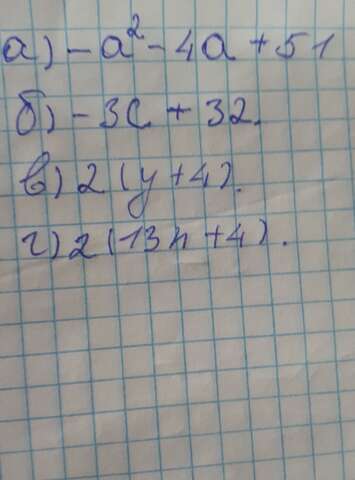 а) -a² - 4a + 51
б) - 3c + 32.
в) 2 (y + 4).
г) 2 (13n + 4).